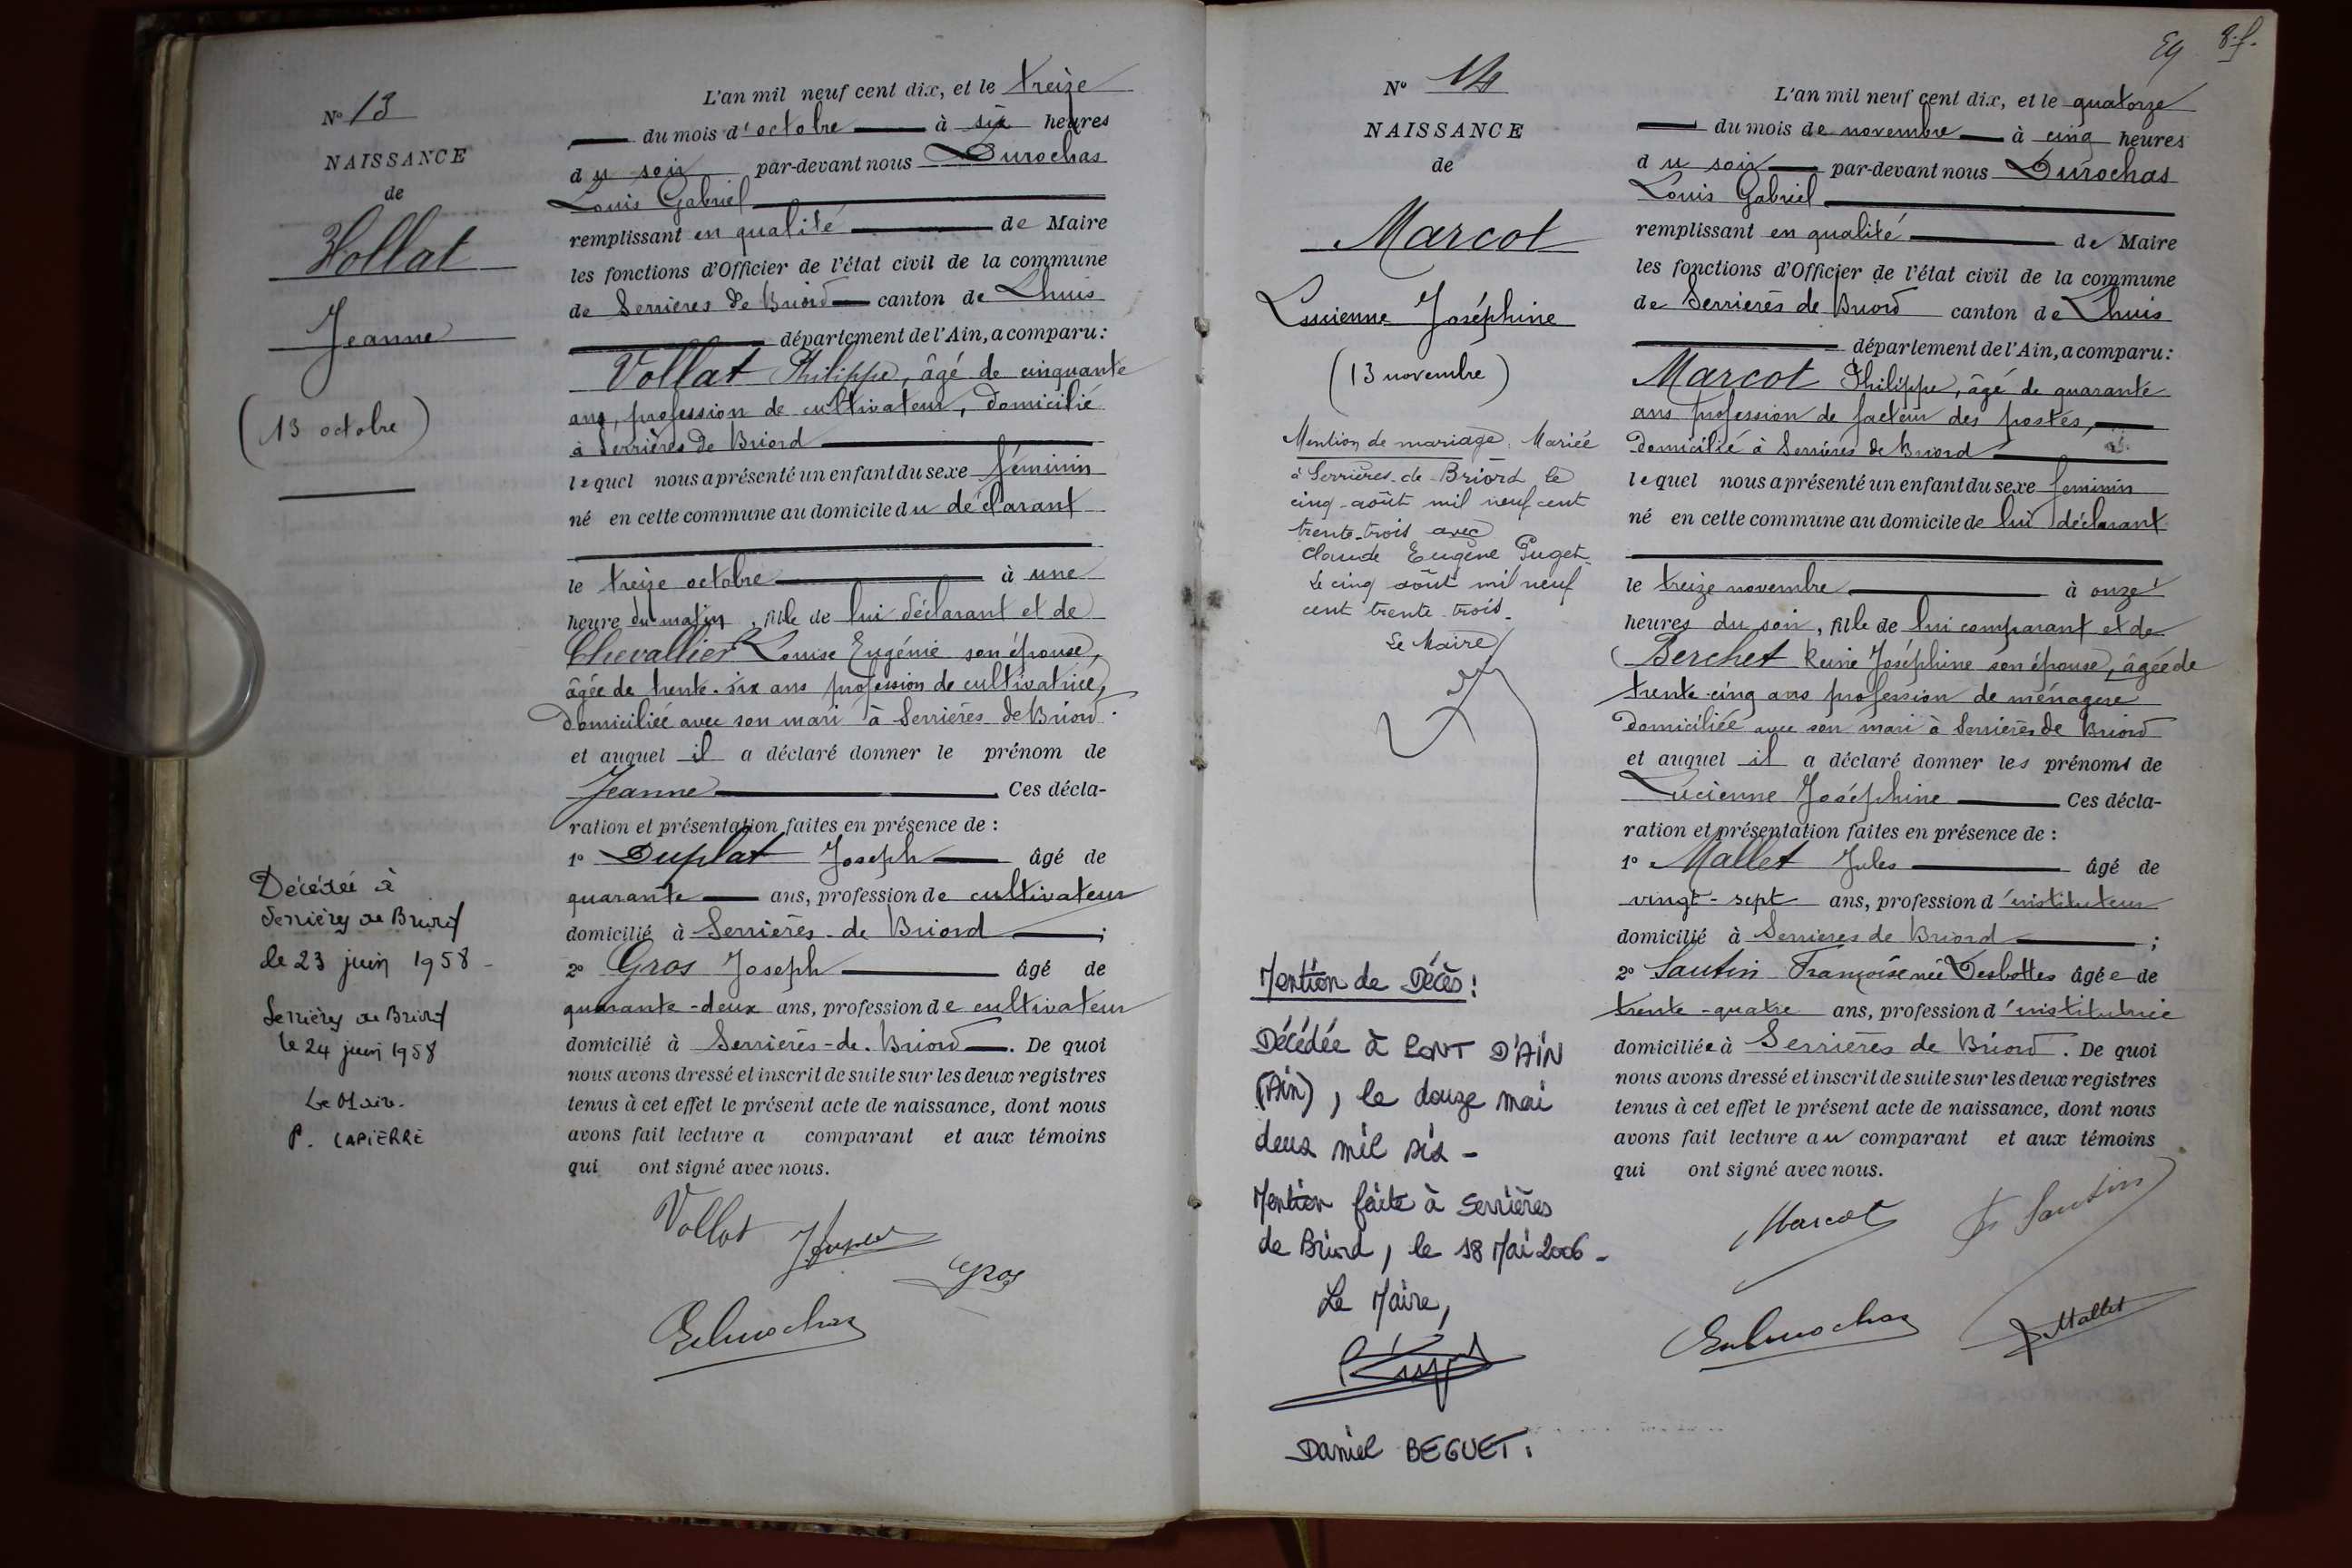 N° 13
NAISSANCE
de
Vollat
Jeanne
(13 octobre)
Décédée à
Serrières de Briord
le 23 juin 1958 -
Serrières de Briord
le 24 juin 1958
Le Maire.
P. LAPIERRE
L'an mil neuf cent dix, et le treize
du mois d'octobre à six heures
du soir par-devant nous Durochas
Louis Gabriel
remplissant en qualité de Maire
les fonctions d'Officier de l'état civil de la commune
de Serrières de Briord canton de Lhuis
département de l'Ain, a comparu :
Vollat Philippe, âgé de cinquante
ans, profession de cultivateur, domicilié
à Serrières de Briord
lequel nous a présenté un enfant du sexe féminin
né en cette commune au domicile du déclarant
le treize octobre à une
heure du matin, fille de lui déclarant et de
Chevallier Louise Eugénie son épouse,
âgée de trente-six ans profession de cultivatrice,
domiciliée avec son mari à Serrières de Briord.
et auquel il a déclaré donner le prénom de
Jeanne Ces décla-
ration et présentation faites en présence de :
1° Duplat Joseph âgé de
quarante ans, profession de cultivateur
domicilié à Serrières-de Briord ;
2° Gros Joseph âgé de
quarante-deux ans, profession de cultivateur
domicilié à Serrières-de-Briord. De quoi
nous avons dressé et inscrit de suite sur les deux registres
tenus à cet effet le présent acte de naissance, dont nous
avons fait lecture a comparant et aux témoins
qui ont signé avec nous.
Vollat
Gros
84 8.f.
N° 14
NAISSANCE
de
Marcot
Lucienne Joséphine
(13 novembre)
Mention de mariage. Mariée
à Serrières-de-Briord le
cinq-août mil neuf cent
trente-trois avec
Claude Eugène Puget.
Le cinq août mil neuf
cent trente-trois.
Le Maire
Mention de Décès :
Décédée à PONT D'AIN
(Ain), le douze mai
deux mil six -
Mention faite à Serrières
de Briord, le 18 Mai 2006 -
Le Maire,
Daniel BEGUET.
L'an mil neuf cent dix, et le quatorze
du mois de novembre à cinq heures
du soir par-devant nous Durochas
Louis Gabriel
remplissant en qualité de Maire
les fonctions d'Officier de l'état civil de la commune
de Serrières de Briord canton de Lhuis
département de l'Ain, a comparu :
Marcot Philippe, âgé de quarante
ans profession de facteur des postes,
domicilié à Serrières de Briord
lequel nous a présenté un enfant du sexe feminin
né en cette commune au domicile de lui déclarant
le treize novembre à onze
heures du soir, fille de lui comparant et de
Berchet Reine Joséphine son épouse, âgée de
trente-cinq ans profession de ménagère
domiciliée avec son mari à Serrières de Briord
et auquel il a déclaré donner les prénoms de
Lucienne Joséphine Ces décla-
ration et présentation faites en présence de :
1° Mallet Jules âgé de
vingt-sept ans, profession d'instituteur
domicilié à Serrieres de Briord ;
2° Sautin Françoise née Desbottes âgée de
trente-quatre ans, profession d'institutrice
domiciliée à Serrières de Briord. De quoi
nous avons dressé et inscrit de suite sur les deux registres
tenus à cet effet le présent acte de naissance, dont nous
avons fait lecture au comparant et aux témoins
qui ont signé avec nous.
Marcot Sautin
Mallet